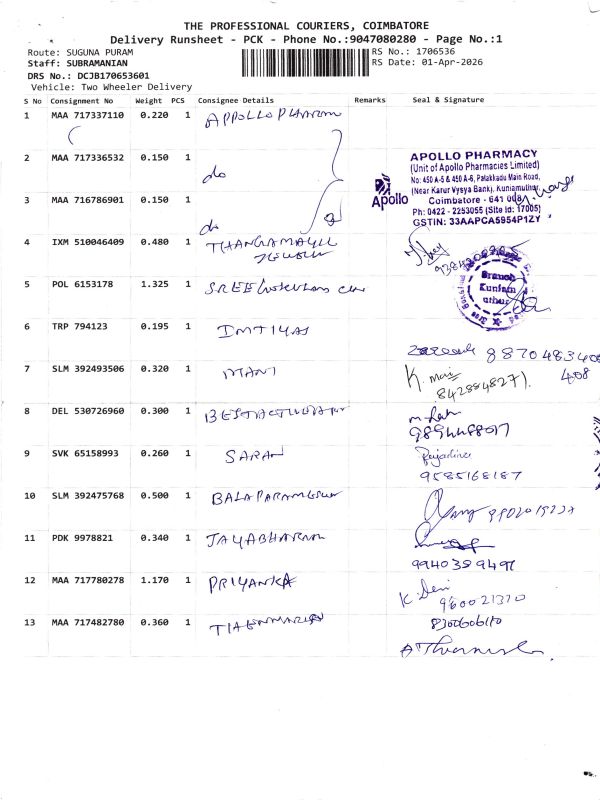 THE PROFESSIONAL COURIERS, COIMBATORE
Delivery Runsheet - PCK - Phone No.:9047080280 - Page No.:1
Route: SUGUNA PURAM
RS No.: 1706536
Staff: SUBRAMANIAN
RS Date: 01-Apr-2026
DRS No.: DCJB170653601
Vehicle: Two Wheeler Delivery
S No Consignment No Weight PCS Consignee Details Remarks Seal & Signature
1 MAA 717337110 0.220 1
2 MAA 717336532 0.150 1 do
3 MAA 716786901 0.150 1 do
APOLLO PHARMACY
(Unit of Apollo Pharmacies Limited)
No: 450 A-5 & 450 A-6, Palakkadu Main Road,
(Near Karur Vysya Bank), Kuniamuthur,
Coimbatore - 641 008
Ph: 0422 - 2253055 (Site Id: 17005)
GSTIN: 33AAPCA5954P1ZY
Apollo
4 IXM 510046409 0.480 1 THANGAMAYIL
Branch
Kuniam
uthur
5 POL 6153178 1.325 1 SREE
6 TRP 794123 0.195 1 IMTIYAS
7 SLM 392493506 0.320 1 MANI
K. Mani
8428848271
408
8 DEL 530726960 0.300 1
9 SVK 65158993 0.260 1 SARAN
9585168187
10 SLM 392475768 0.500 1
11 PDK 9978821 0.340 1
9940389491
12 MAA 717780278 1.170 1 PRIYANKA
K. Devi
13 MAA 717482780 0.360 1